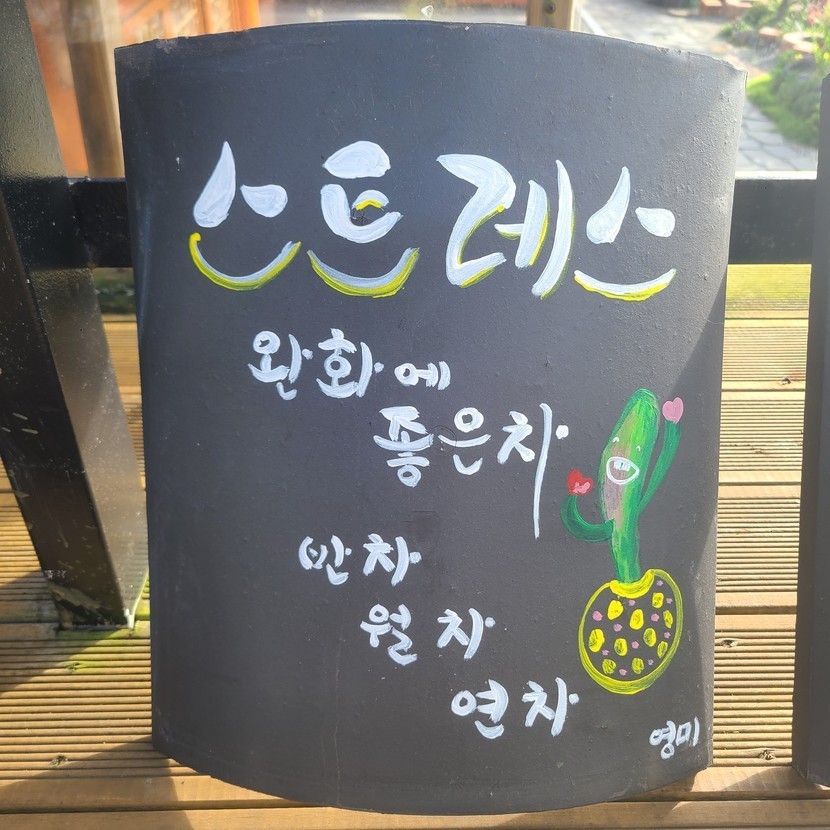 스트레스
완화에
좋은차
반차
월차
연차
영미